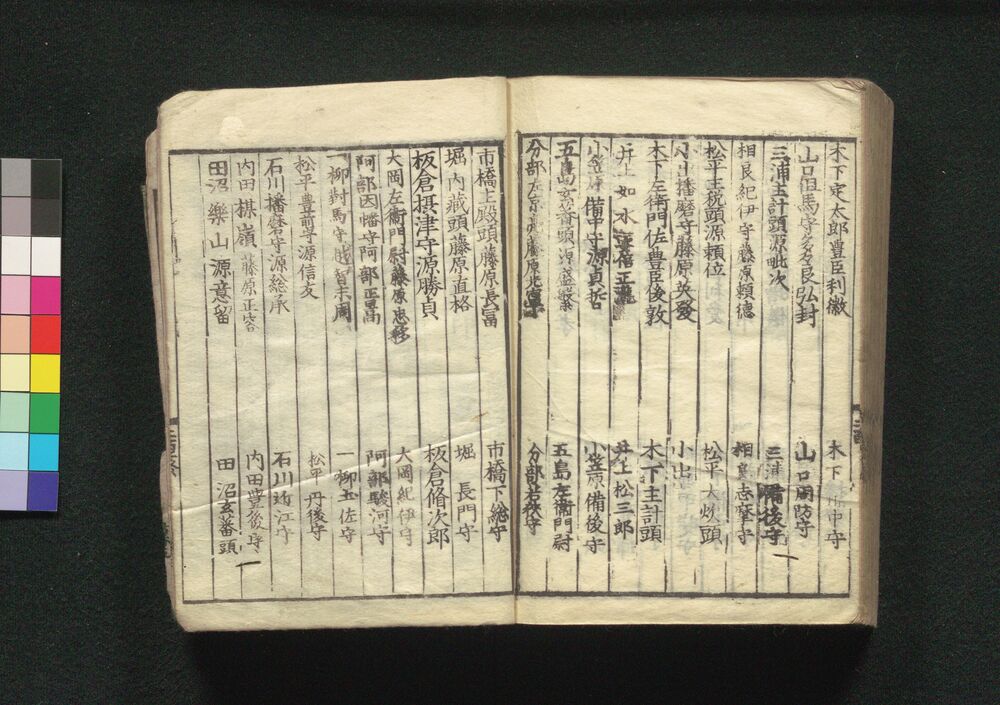 木下定太郎豊臣利徽 木下備中守
山口但馬守多々良弘封 山口周防守
三浦主計頭源毗次 三浦備後守
相良紀伊守藤原頼徳 相良志摩守
松平主税頭源頼位 松平大炊頭
小出播磨守藤原英發 小出
木下左衛門佐豊臣俊敦 木下主計頭
井上如水 正瀧 井上松三郎
小笠原備中守源貞哲 小笠原備後守
五島 頭源盛繁 五島左衛門尉
分部左京亮藤原光寧 分部若狭守
市橋主殿頭藤原長富 市橋下総守
堀内蔵頭藤原直格 堀長門守
板倉摂津守源勝貞 板倉脩次郎
大岡左衛門尉藤原忠移 大岡紀伊守
阿部因幡守阿部正昌 阿部駿河守
一柳對馬守越智末周 一柳兵佐守
松平豊前守源信友 松平丹後守
石川播磨守源総承 石川近江守
内田棋嶺藤原正容 内田豊後守
田沼樂山源意留 田沼玄蕃頭